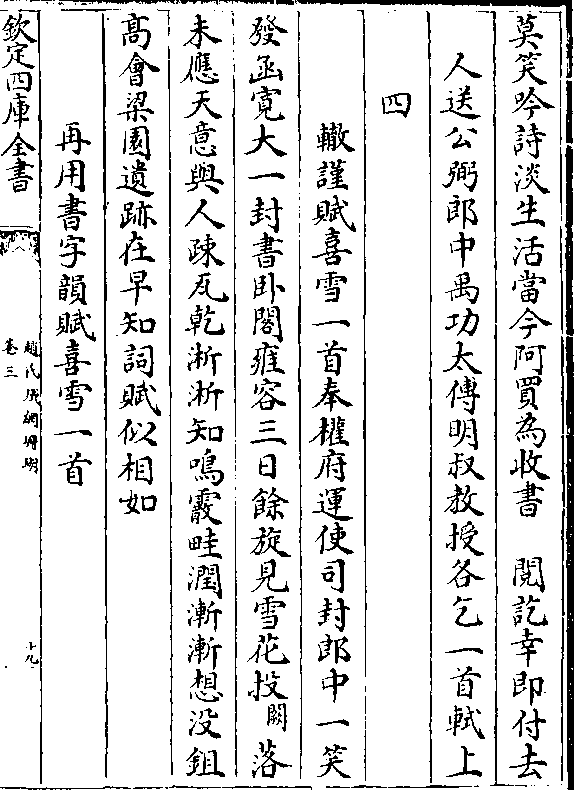 莫笑吟詩淡生活當今阿買為收書　閱訖幸即付去
人送公弼郎中禺功太傅明叔教授各乞一首軾上
四
轍謹賦喜雪一首奉權府運使司封郎中一笑
發函寛大一封書卧閣雍容三日餘旋見雪花投闕落
未應天意與人疎瓦乾淅淅知鳴霰畦潤漸漸想没鉏
髙會梁園遺跡在早知詞賦似相如
再用書字韻賦喜雪一首
欽定四庫全書
趙氏鐵網珊瑚
卷三
十九